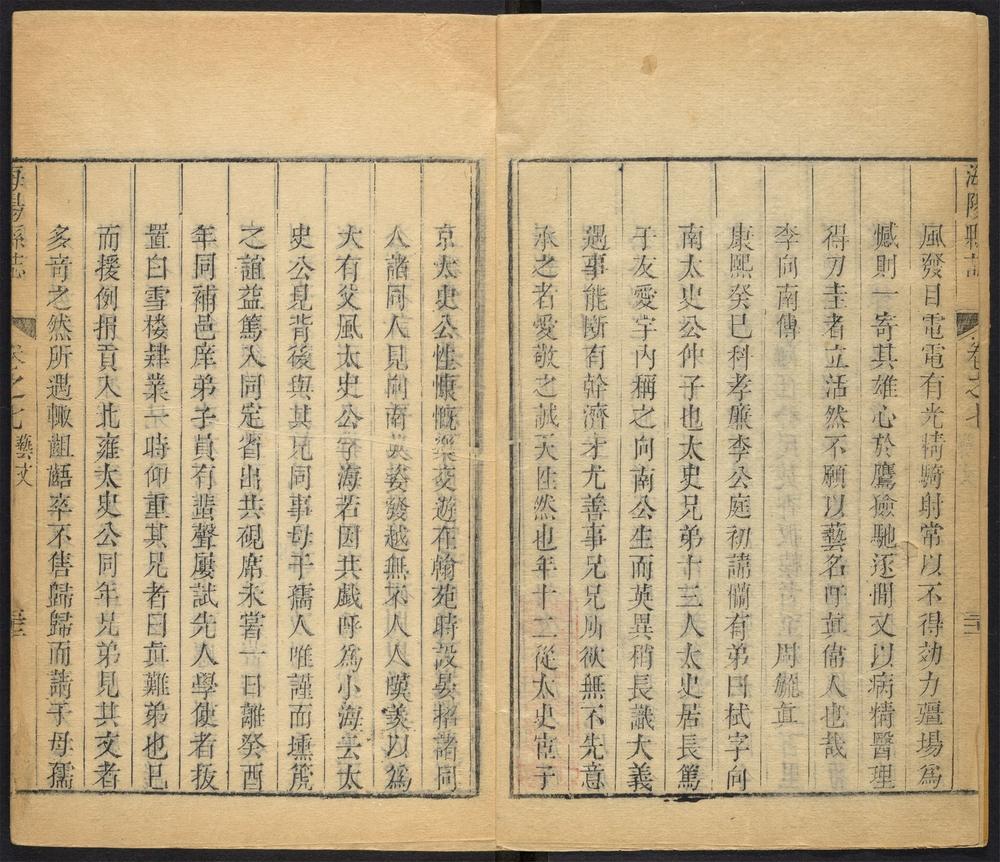 海陽縣志
卷之七
三二
風發日電電有光精騎射常以不得効力疆場為
憾則一寄其雄心於鷹獫馳逐間又以病精醫理
得刀圭者立活然不願以藝名呼眞偉人也哉
李向南傳 周毓眞
康熙癸巳科孝廉李公庭初諱儼有弟曰栻字向
南太史公仲子也太史兄弟十三人太史居長篤
于友愛宇內稱之向南公生而英異稍長識大義
遇事能斷有幹濟才尤善事兄兄所欲無不先意
承之者愛敬之誠天性然也年十二從太史宦于
京太史公性慷慨樂交遊在翰苑時設宴招諸同
人諸同人見向南英姿發越無不人人嘆羨以為
大有父風太史公字海若因共戲呼為小海云太
史公見背後與其兄同事母于孺人唯謹而壎篪
之誼益篤入同定省出共硯席未嘗一日離癸酉
年同補邑庠弟子員有蜚聲屢試先人學使者拔
置白雪楼肄業一時仰重其兄者曰眞難弟也已
而援例捐貢入北雍太史公同年兄弟見其文者
多奇之然所遇輙齟齬卒不售歸歸而請于母孺
海陽縣志
卷之七
藝文
三三